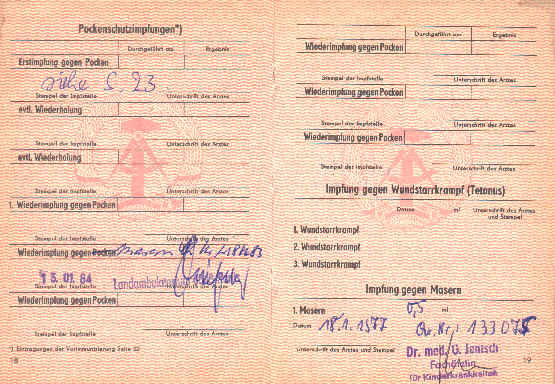 Pockenschutzimpfungen*)
Durchgeführt am Ergebnis
Erstimpfung gegen Pocken
siehe S. 23
Stempel der Impfstelle Unterschrift des Arztes
evtl. Wiederholung
Stempel der Impfstelle Unterschrift des Arztes
evtl. Wiederholung
Stempel der Impfstelle Unterschrift des Arztes
1. Wiederimpfung gegen Pocken
Stempel der Impfstelle Unterschrift des Arztes
Wiederimpfung gegen Pocken Masern
15. 01. 84
Stempel der Impfstelle Unterschrift des Arztes
Wiederimpfung gegen Pocken
Stempel der Impfstelle Unterschrift des Arztes
*) Eintragungen der Vorimmunisierung Seite 23
18
Durchgeführt am Ergebnis
Wiederimpfung gegen Pocken
Stempel der Impfstelle Unterschrift des Arztes
Wiederimpfung gegen Pocken
Stempel der Impfstelle Unterschrift des Arztes
Wiederimpfung gegen Pocken
Stempel der Impfstelle Unterschrift des Arztes
Impfung gegen Wundstarrkrampf (Tetanus)
Datum ml Unterschrift des Arztes und Stempel
1. Wundstarrkrampf
2. Wundstarrkrampf
3. Wundstarrkrampf
Impfung gegen Masern
1. Masern 0,5 ml
Datum 18.1.1977 Ch. Nr.: 133075
Unterschrift des Arztes und Stempel
Dr. med. G. Jentsch
Fachärztin
für Kinderkrankheiten
19